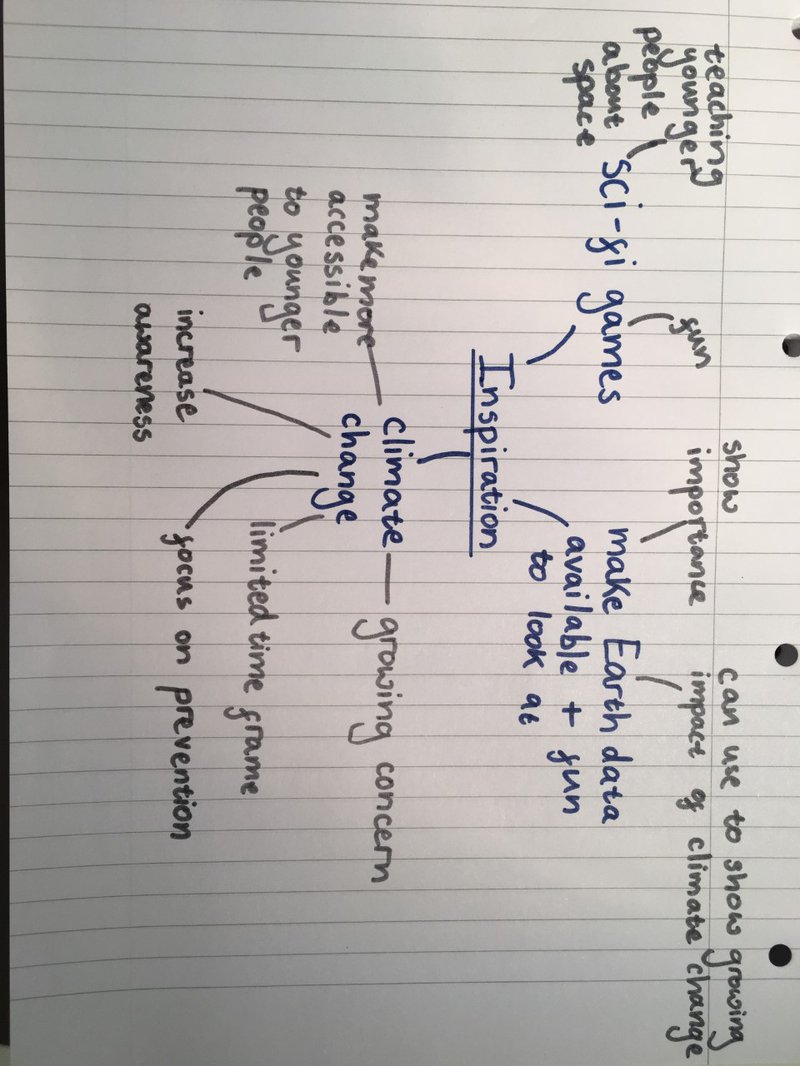 teaching
younger
people
about
space
fun
sci-fi games
show
importance
can use to show growing
impact of climate change
make Earth data
available + fun
to look at
Inspiration
climate
change
make more
accessible
to younger
people
growing concern
increase
awareness
limited time frame
focus on prevention